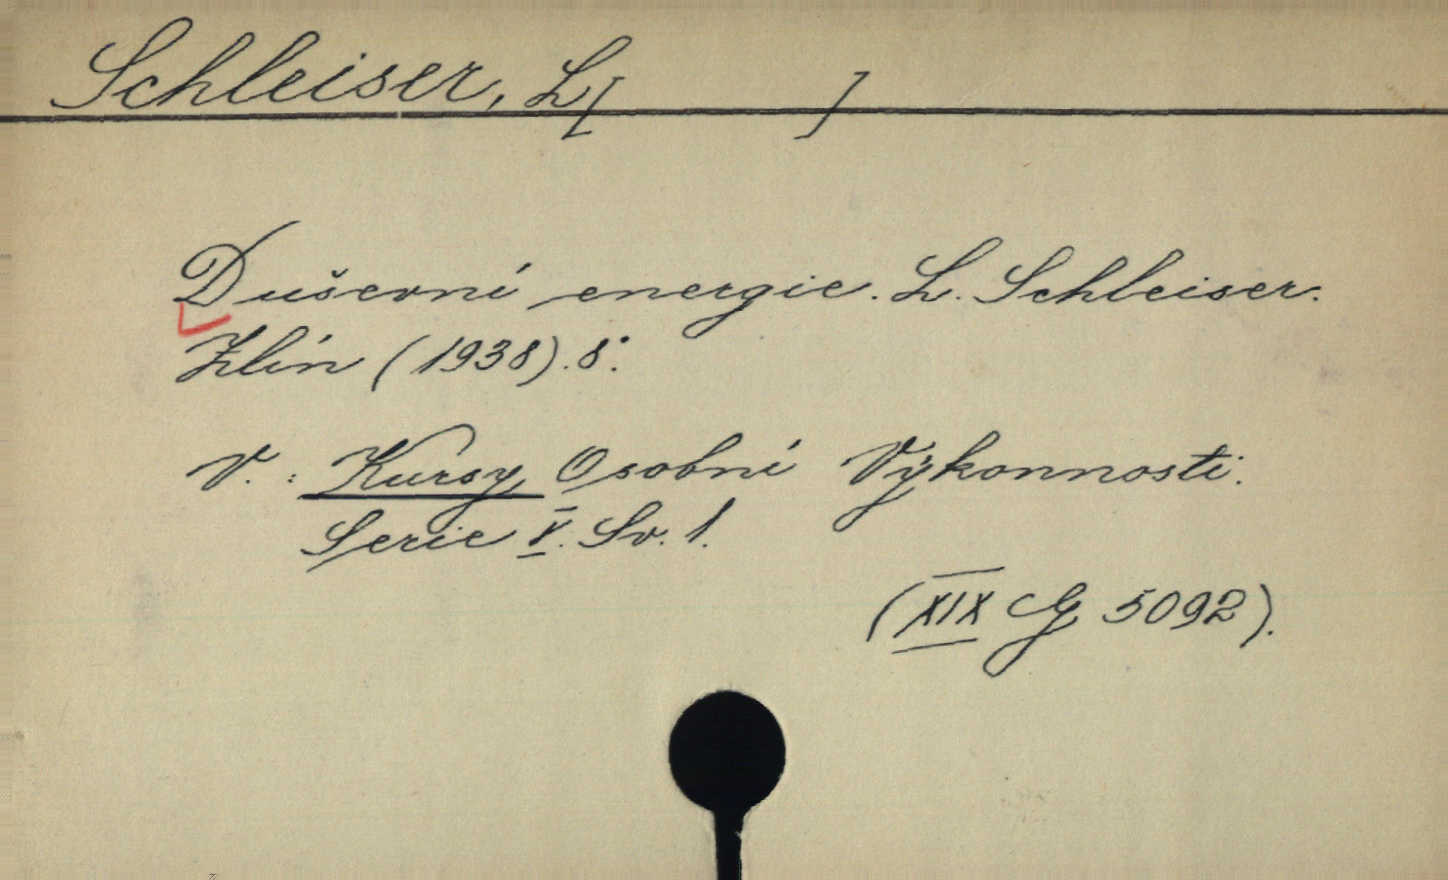 Schleiser, L[ ]
Duševní energie. L. Schleiser.
Zlín (1938). 8°.
V.: Kursy Osobní Výkonnosti.
Serie V. Sv. 1.
(XIX G 5092).